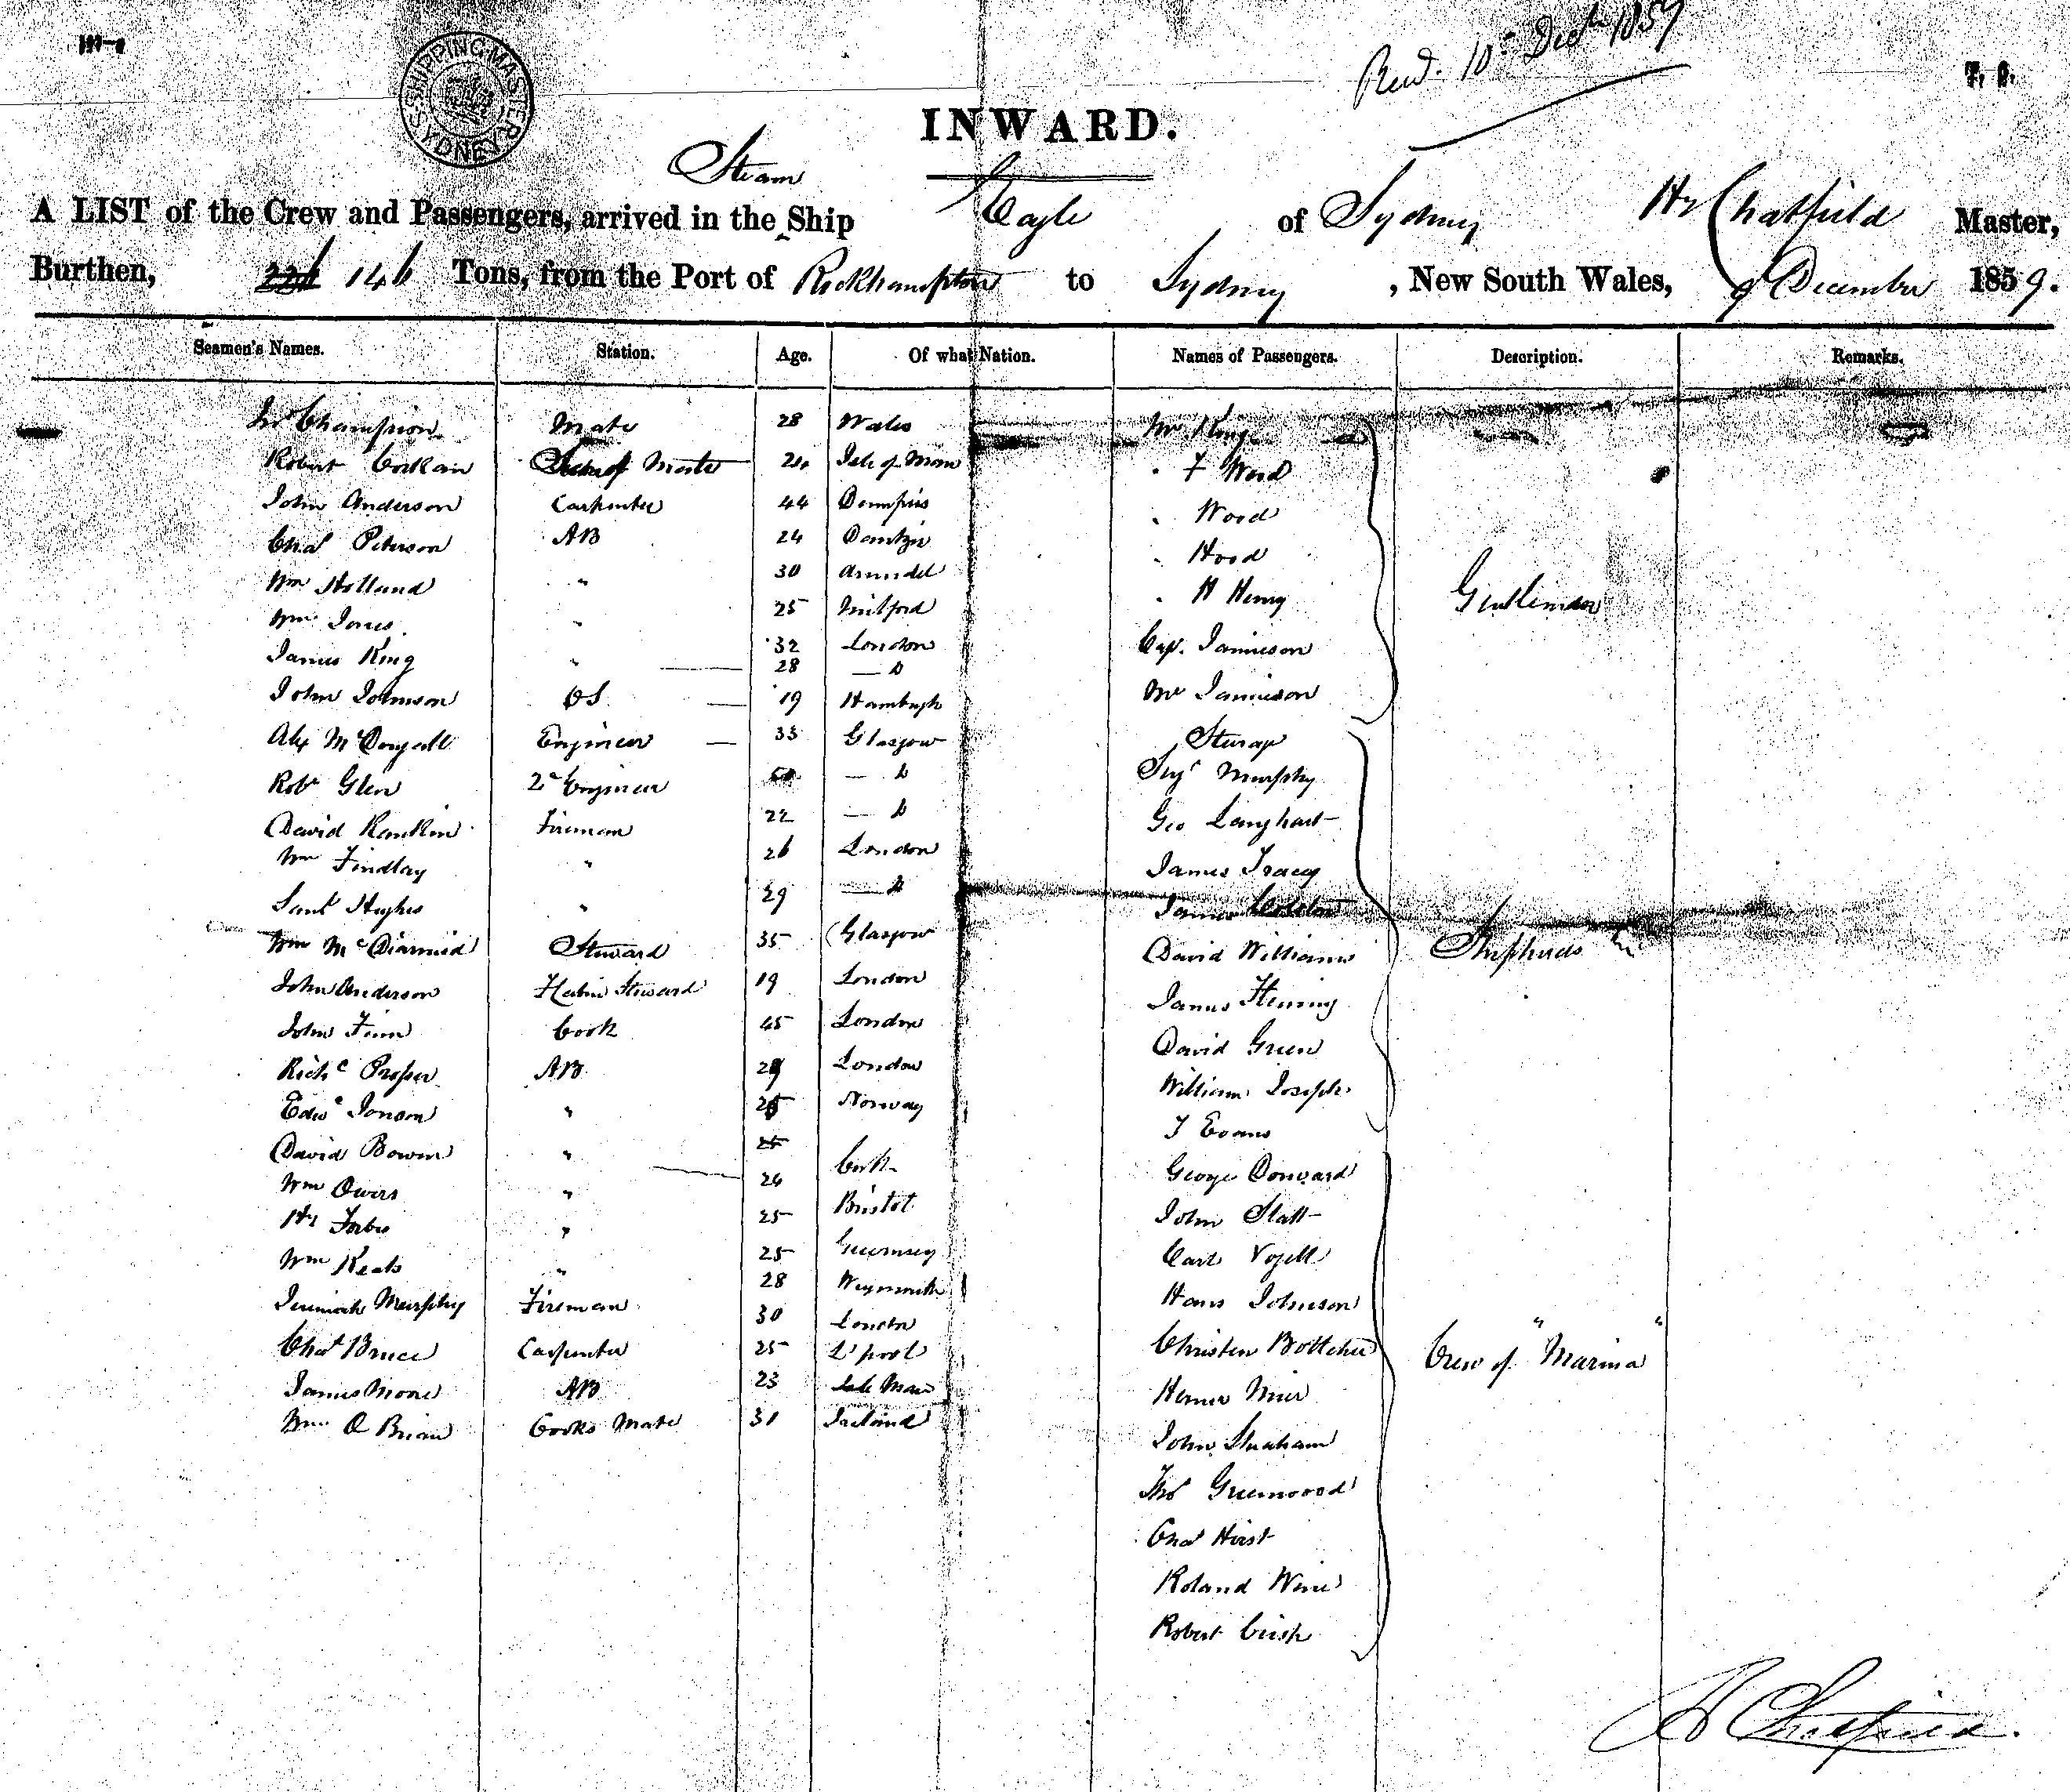 SHIPPING MASTER SYDNEY
Recd. 10th Decr 1859
T. S.
INWARD.
Steam
A LIST of the Crew and Passengers, arrived in the ‸Ship Eagle of Sydney Hy Chatfield Master,
Burthen, 146 Tons, from the Port of Rockhampton to Sydney , New South Wales, 9 December 1859.
Seamen's Names. Station. Age. Of what Nation. Names of Passengers. Description. Remarks.
Jno Champion Mate 28 Wales Mr King
Robert Corkan Second Mate 24 Isle of Man " F Wood
John Anderson Carpenter 44 Dumfries " Wood
Chas Peterson AB 24 Dantzic " Hood
Wm Holland " 30 Arundel " H Henry Gentlemen
Wm Jones " 25 Milford
James King " 32 London Cap. Jamieson
28 — Do
John Johnson OS 19 Hamburgh Mr Jamieson
Alex McDougall Engineer 33 Glasgow Steerage
Robt Glen 2d Engineer — Do Sergt Murphy
David Rankin Fireman 22 — Do Geo Langhart
Wm Findlay " 26 London James Tracey
Saml Hughes " 29 — Do James
Wm McDiarmid Steward 35 Glasgow David Williams Shepherds
John Anderson Steward 19 London James Fleming
John Finn Cook 45 London David Green
Richd Prosser AB 29 London William Joseph
Edwd Jonson " 25 Norway J Evans
David Bowen " 25
Wm Owers " 24 Cork George Donward
Hy Forbes " 25 Bristol John Slatt
Wm Keats " 25 Guernsey Carl Vogell
Jeremiah Murphy Fireman 28 Weymouth Hans Johnson
30 London
Chas Bruce Carpenter 25 L'pool Christen Bottcher Crew of "Marina"
James Moore AB 23 Isle Man
Wm O Brian Cooks Mate 31 Ireland
John Strachan
Thos Greenwood
Chas Hirst
Roland
Robert
H Chatfield.